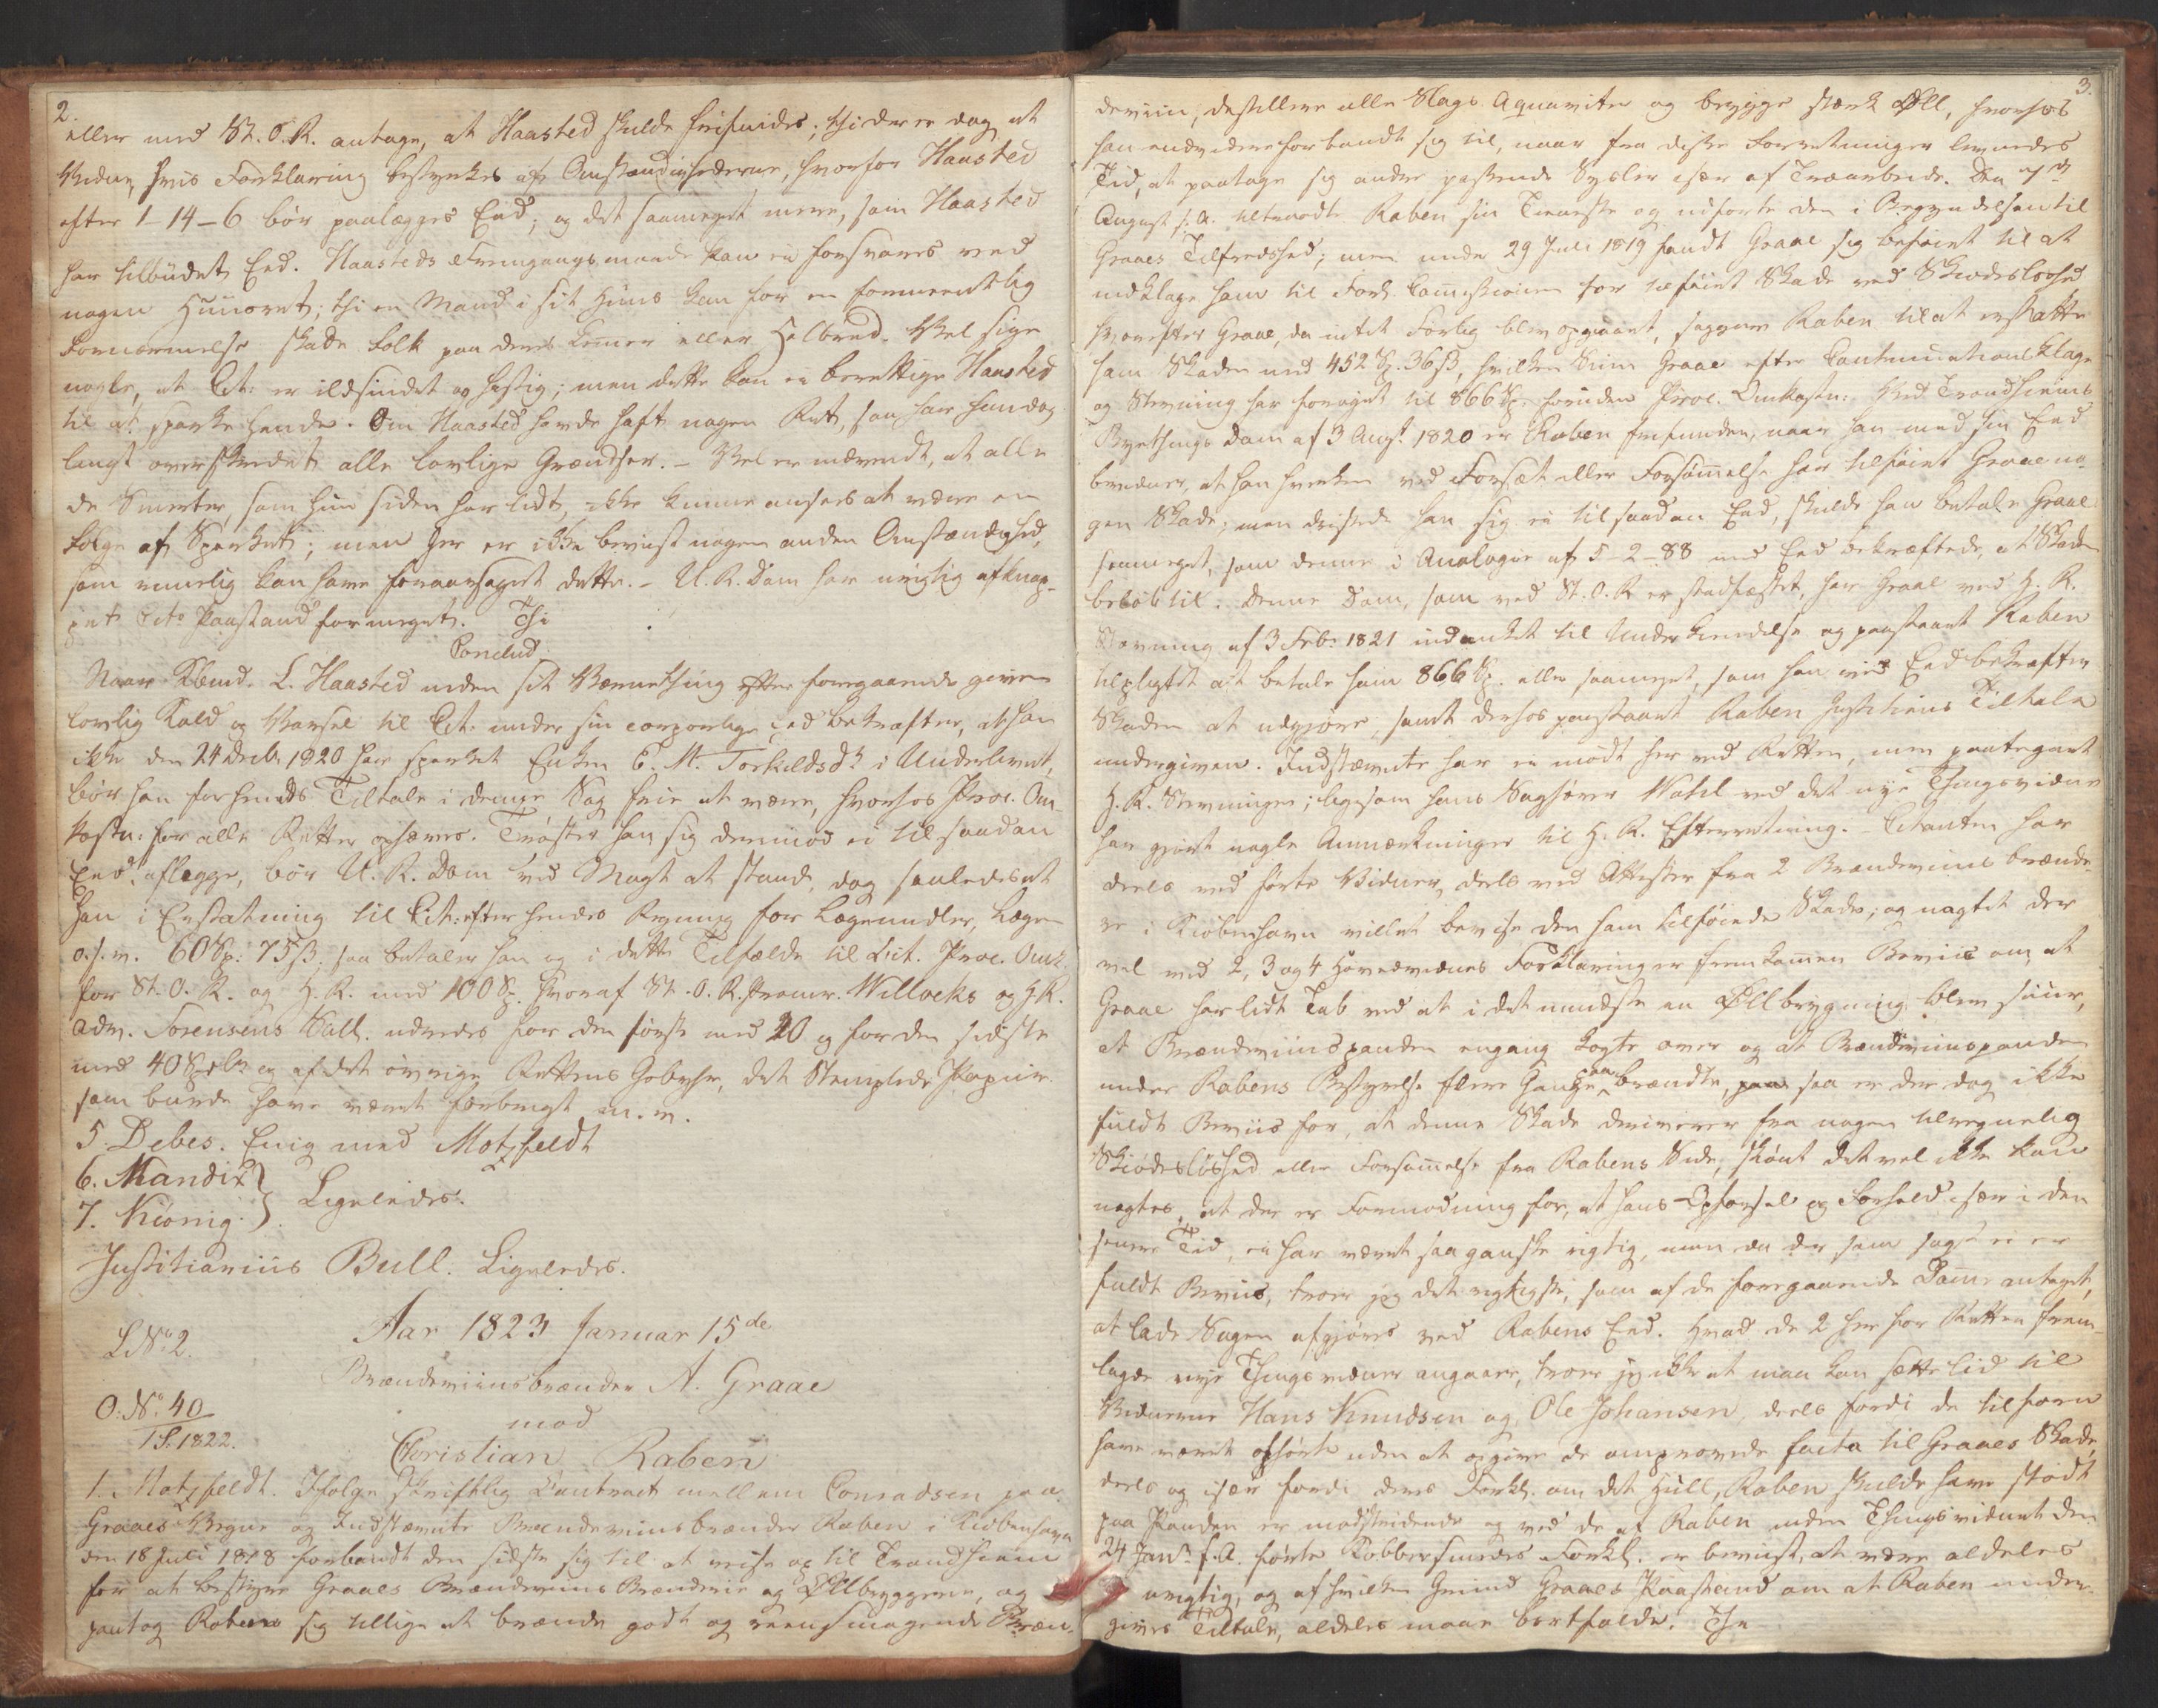 2.
eller med St. O. R. antage, at Haasted skulde frifindes; thi der er dog et
Vidne, hvis Forklaring bestyrkes af Omstændighederne, hvorfor Haasted
efter 1-14-6 bör paalægges Eed; og det saameget mere, som Haasted
har tilbudet Eed. Haasteds Fremgangsmaade kan ei forsvares ved
nogen Huusret; thi en Mand i sit Huus kan for en formeentlig
Fornærmelse skade Folk paa deres Lemer eller Helbred. Vel sige
nogle, at Cit: er ildsindet og hæftig; men dette kan ei berettige Haasted
til at sparke hende. Om Haasted havde haft nogen Ret, saa har han dog
langt overskredet alle lovlige Grændser. – Vel er nævnt, at alle
de Smerter, som hun siden har lidt, ikke kunne ansees at være en
Følge af Sparket; men her er ikke beviist nogen anden Omstændighed,
som rimelig kan have foraarsaget dette. – U. R. Dom har urigtig afknap-
pet Cits Paastand for meget. Thi
Conclud.
Naar Kbmd. L. Haasted inden sit Værnething efter foregaaende given
lovlig Kald og Varsel til Cit: under sin corporlige Eed bekræfter, at han
ikke den 24 Decb. 1820 har sparket Enken E. M. Torkildsdr i Underlivet,
bör han for hendes Tiltale i denne Sag frie at være, hvorhos Proc. Om-
kostn: for alle Retter ophæves. Trøster han sig derimod ei til saadan
Eed at aflægge, bör U. R. Dom ved Magt at stande, dog saaledes at
han i Erstatning til Cit: efter hendes Regning for Lægemidler, Læge
o. s. v. 60 Sp: 75 ß. saa betaler han og i dette Tilfælde til Cit. Proc. Omk.
for St. O. R. og H. R. med 100 Sp. hvoraf St. O. R. Procur. Willochs og H. R.
Adv. Sorensens Sall. udredes for den første med 20 og for den sidste
med 40 Spdlr og af det øvrige Rettens Gebyhr, det Stemplede Papiir
som burde have været forbrugt m. v.
5. Debes. Enig med Motzfeldt
6. Mandix }
7. Kiönig. } Ligeledes.
Justitiarius Bull. Ligeledes.
Aar 1823 Januar 15de
L No 2.
Brændeviinsbrænder A. Graae
O: No 40
1 S. 1822.
mod
Christian Raben
1. Motzfeldt. Ifølge skriftlig Contract mellem Conradsen paa
Graaes Vegne og Indstævnte Brændeviinsbrænder Raben i Kiøbenhavn
den 18 Juli 1818 forbandt den sidste sig til at reise op til Trondhiem
for at bestyre Graaes Brændeviins Brænderie og Øllbryggerie, og
paatog Raben sig tillige at brænde godt og reensmagende Bræn-
3.
deviin, destillere alle Slags Aquaviter og brygge stærk Øll, hvorhos
han endvidere forbandt sig til, naar fra disse Forretninger levnedes
Tid, at paatage sig andre passende Sysler især af Træarbeide. Den 17de
August s. A. tiltraadte Raben sin Tieneste og udførte den i Begyndelsen til
Graaes Tilfredshed; men under 29 Juli 1819 fandt Graae sig beføiet til at
indklage ham til Forl. Comissionen for tilføiet Skade ved Skiødesløshed
hvorefter Graae, da intet Forlig blev opnaaet, sagsøgte Raben til at erstatte
ham Skaden med 452 Sp. 36 ß, hvilken Sum Graae efter Continuationsklage
og Stevning har forøget til 866 Sp. foruden Proc. Omkostn: Ved Trondhiems
Byethings Dom af 3 Augt 1820 er Raben frifunden, naar han med sin Eed
benegter, at han hverken ved Forsæt eller Forsömelse har tilføiet Graae no-
gen Skade; men dristede han sig ei til saadan Eed, skulde han betale Graae
saameget, som denne i Analogie af 5-2-88 med Eed bekræftede, at Skaden
beløb til. Denne Dom, som ved St. O. R. er stadfæstet, har Graae ved H. R.
Stevning af 3 Feb: 1821 indanket til Underkiendelse og paastaaet Raben
tilpligtet at betale ham 866 Sp. eller saameget, som han ved Eed bekræfter
Skaden at udgjøre, samt derhos paastaaet Raben Justitiens Tiltale
undergiven. Indstævnte har ei mødt her ved Retten, men paategnet
H. R. Stevningen; ligesom hans Sagfører Wahl ved det nye Thingsvidne
har gjort nogle Anmærkninger til H. R. Efterretning. – Citanten har
deels ved førte Vidner, deels ved Attester fra 2 Brændeviins brænde-
re i Kiøbenhavn villet bevise den ham tilføiede Skade; og uagtet der
vel ved 2, 3 og 4 Hovedvidnes Forklaring er fremkomen Beviis om, at
Graae har lidt Tab ved at i det mindste en Øllbrygning blev suur,
at Brændeviinspanden engang kogte over og at Brændeviinspanden
under Rabens Bestyrelse flere Gange paabrændte, saa er der dog ikke
fuldt Beviis for, at denne Skade deriverer fra nogen tilregnelig
Skiødesløshed eller Forsømelse fra Rabens Side, skiønt det vel ikke kan
negtes, at der er Formodning for, at hans Opførsel og Forhold især i den
senere Tid, ei har været saa ganske rigtig, men da der som sagt ei er
fuldt Beviis, troer jeg det rigtigste, som af de foregaaende Dome antaget,
at lade Sagen afgjøres ved Rabens Eed. Hvad de 2 her for Retten frem-
lagde nye Thingsvidner angaaer, troer jeg ikke at man kan sætte Lid til
Vidnerne Hans Knudsen og Ole Johansen, deels fordi de tilforn
have været afhørte uden at opgive de omprovede facta til Graaes Skade,
deels og især fordi deres Forkl. om det Hull, Raben skulde have stødt
paa Panden er modstridende og ved de af Raben under Thingsvidnet den
24 Janr. f. A. førte Kobbersmedes Forkl. er beviist, at være aldeles
urigtig, og af hvilken Grund Graaes Paastand om at Raben under-
gives Tiltale, aldeles maae bortfalde. Thi